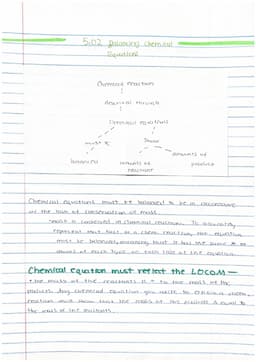 5.02 Balancing Chemical
Equations
Chemical reactions
described through
Chemical equations
must be
show
balanced
amounts of
amounts of
reactant
products
Chemical equations must be balanced to be in accordance
w/ the law of conservation of mass.
mass is conserved in chemical reaction. To accurately
represent must be a chem reaction, the equation
must be balanced, meaning that it has the same # of
atoms of each type on each side of the equation.
Chemical equation must reflect the LOCOM—
the mass of the reactants is = to the mass of the
products. Any chemical equation you write to a chem
reaction must show that the mass of the products is equal to
the mass of the reactants.